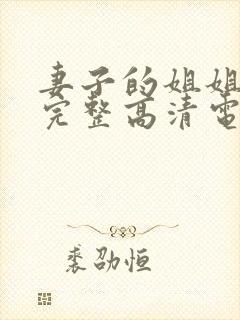 妻子的姐姐
完整高清電
裘劭恒